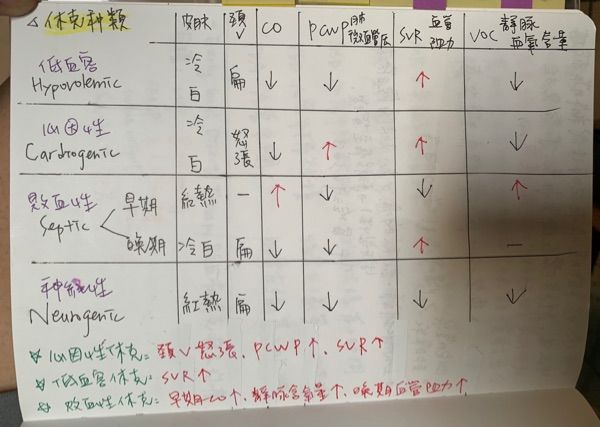 △ 休克種類 皮膚 頸V CO PCWP 肺微血管压 SVR 血管阻力 VOC 靜脈血氧含量
低血容 Hypovolemic 冷白 扁 ↓ ↓ ↑ ↓
心因性 Cardiogenic 冷白 怒張 ↓ ↑ ↑ ↓
敗血性 Septic 早期 紅熱 — ↑ ↓ ↓ ↑
晚期 冷白 扁 ↓ ↓ ↑ —
神經性 Neurogenic 紅熱 扁 ↓ ↓ ↓ ↓
心因性休克: 頸V怒張、PCWP↑、SVR↑
低血容休克: SVR↑
敗血性休克: 早期CO↑、靜脈含氧量↑、晚期血管阻力↑